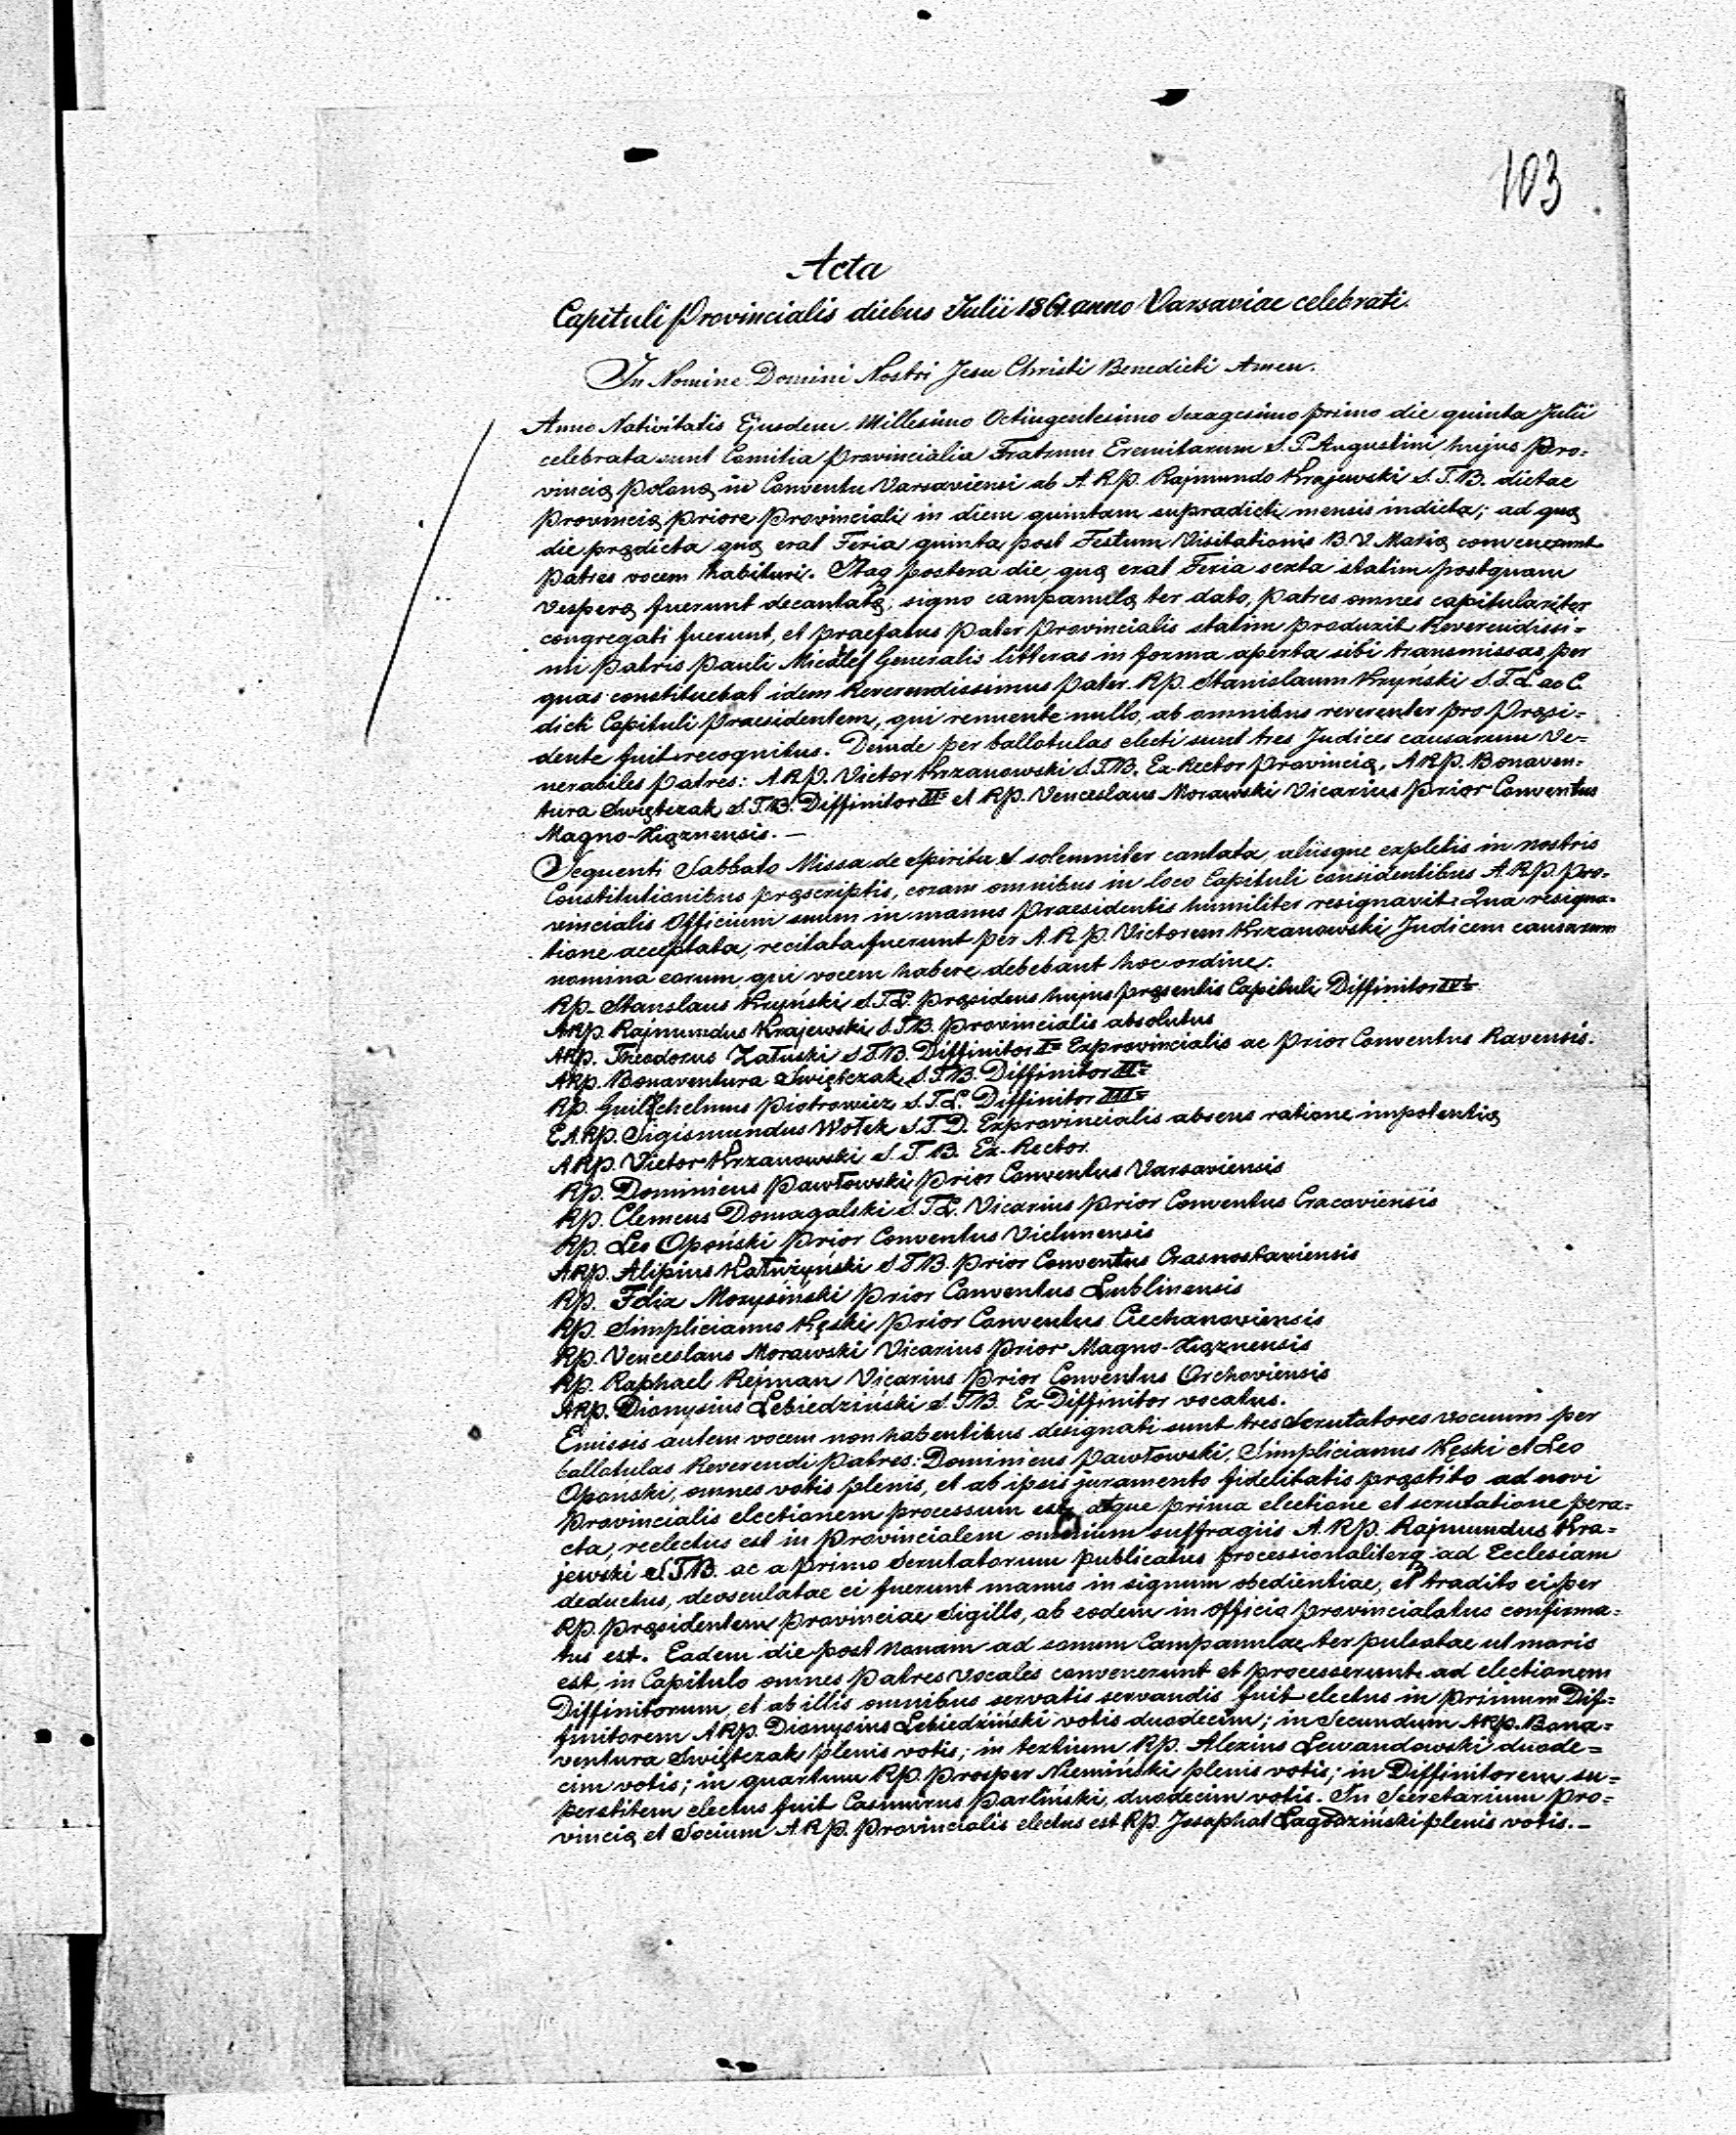 103
Acta
Capituli Provincialis diebus Julii 1861 anno Varsaviae celebrati.
In Nomine Domini Nostri Jesu Christi Benedicti Amen.
Anno Nativitatis Ejusdem Millesimo Octingentesimo Sexagesimo primo die quinta Julii
celebrata sunt Comitia Provincialia Fratrum Eremitarum S. P. Augustini hujus Pro=
vincię Polonę in Conventu Varsaviensi ab A. R. P. Rajmundo Krajewski S. T. B. dictae
Provincię Priore Provinciali in diem quintam supradicti mensis indicta; ad quę
die prędicta quę erat Feria quinta post Festum Visitationis B. V. Marię convenerunt
Patres vocem habituri. Itaq postera die, quę erat Feria sexta statim postquam
Vesperę fuerunt decantatę, signo campanulę ter dato, Patres omnes capitulariter
congregati fuerunt, et praefatus Pater Provincialis statim produxit Reverendissi=
mi Patris Pauli Micalef Generalis litteras in forma aperta sibi transmissas per
quas constituebat idem Reverendissimus Pater RP. Stanislaum Kryński S. T. L. ac C.
dicti Capituli Praesidentem, qui renuente nullo, ab omnibus reverenter pro Pręsi=
dente fuit recognitus. Deinde per ballotulas electi sunt tres Judices causarum Ve=
nerabiles Patres: A. R. P. Victor Krzanowski S. T. B. Ex-Rector Provincię, A R P. Bonaven=
tura Swiętczak S. T. B. Diffinitor II= et RP. Venceslaus Morawski Vicarius Prior Conventus
Magno-Xiąznensis. —
Sequenti Sabbato Missa de Spiritu S. solemniter cantata, aliisque expletis in nostris
Constitutionibus pręscriptis, coram omnibus in loco Capituli considentibus A. R. P. Pro=
vincialis Officium suum in manus Praesidentis humiliter resignavit. Qua resigna=
tione acceptata, recitata fuerunt per A. R. P. Victorem Krzanowski Judicem causarum
nomina eorum, qui vocem habere debebant hoc ordine.
RP. Stanslaus Kryński S. T. L. pręsidens hujus pręsentis Capituli Diffinitor IV=
ARP. Rajmundus Krajewski S. T. B. Provincialis absolutus
ARP. Theodorus Załuski S. T. B. Diffinitor I= Exprovincialis ac Prior Conventus Ravensis.
ARP. Bonaventura Swiętczak S. T. B. Diffinitor II=
RP. Guilhelmus Piotrowicz S. T. L. Diffinitor III=
E A. RP. Sigismundus Wołek S. T. D. Exprovincialis absens ratione impotentię
A RP. Victor Krzanowski S. T. B. Ex-Rector.
RP. Dominicus Pawłowski Prior Conventus Varsaviensis
RP. Clemens Domagalski S. T. L. Vicarius Prior Conventus Cracoviensis
RP. Leo Opoński Prior Conventus Vielunensis
ARP. Alipius Kałużyński S T B. Prior Conventus Crasnostaviensis
RP. Felix Morysiński Prior Conventus Lublinensis
RP. Simplicianus Kęski Prior Conventus Ciechanoviensis
RP. Venceslaus Morawski Vicarius Prior Magno-Xiąznensis
RP. Raphael Rejman Vicarius Prior Conventus Orchoviensis
ARP. Dionysius Lebiedziński S. T B. Ex-Diffinitor vocatus.
Emissis autem vocem non habentibus designati sunt tres Scrutatores vocuum per
ballotulas Reverendi Patres: Dominicus Pawłowski, Simplicianus Kęski et Leo
Oponski, omnes votis plenis, et ab ipsis juramento fidelitatis pręstito ad novi
Provincialis electionem processum est, atque prima electione et scrutatione pera=
cta, reelectus est in Provincialem omnium suffragiis A. RP. Rajmundus Kra=
jewski S. T B. ac a primo Scrutatorum publicatus processionaliterq ad Ecclesiam
deductus, deosculatae ei fuerunt manus in signum obedientiae, et tradito ei per
RP. Pręsidentem Provinciae Sigillo, ab eodem in officio provincialatus confirma=
tus est. Eadem die post nonam ad sonum Campanulae ter pulsatae ut moris
est, in Capitulo omnes Patres Vocales convenerunt et processerunt ad electionem
Diffinitorum, et ab illis omnibus servatis servandis fuit electus in primum Dif=
finitorem A RP. Dionysius Lebiedziński votis duodecim; in Secundum ARP. Bona=
ventura Swiętczak plenis votis; in tertium RP. Alexius Lewandowski duode=
cim votis; in quartum RP. Prosper Niemiński plenis votis; in Diffinitorem su=
perstitem electus fuit Casimirus Parliński, duodecim votis. In Secretarium Pro=
vincię et Socium A R P. Provincialis electus est RP. Josaphat Łagodziński plenis votis. —